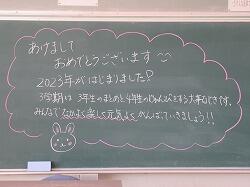 あけまして
おめでとうございます
2023年がはじまりました?
3学期は 3年生のまとめと4年生のじゅんびをする大事なときです。
みんなでなかよく楽しく元気よく がんばっていきましょう!!